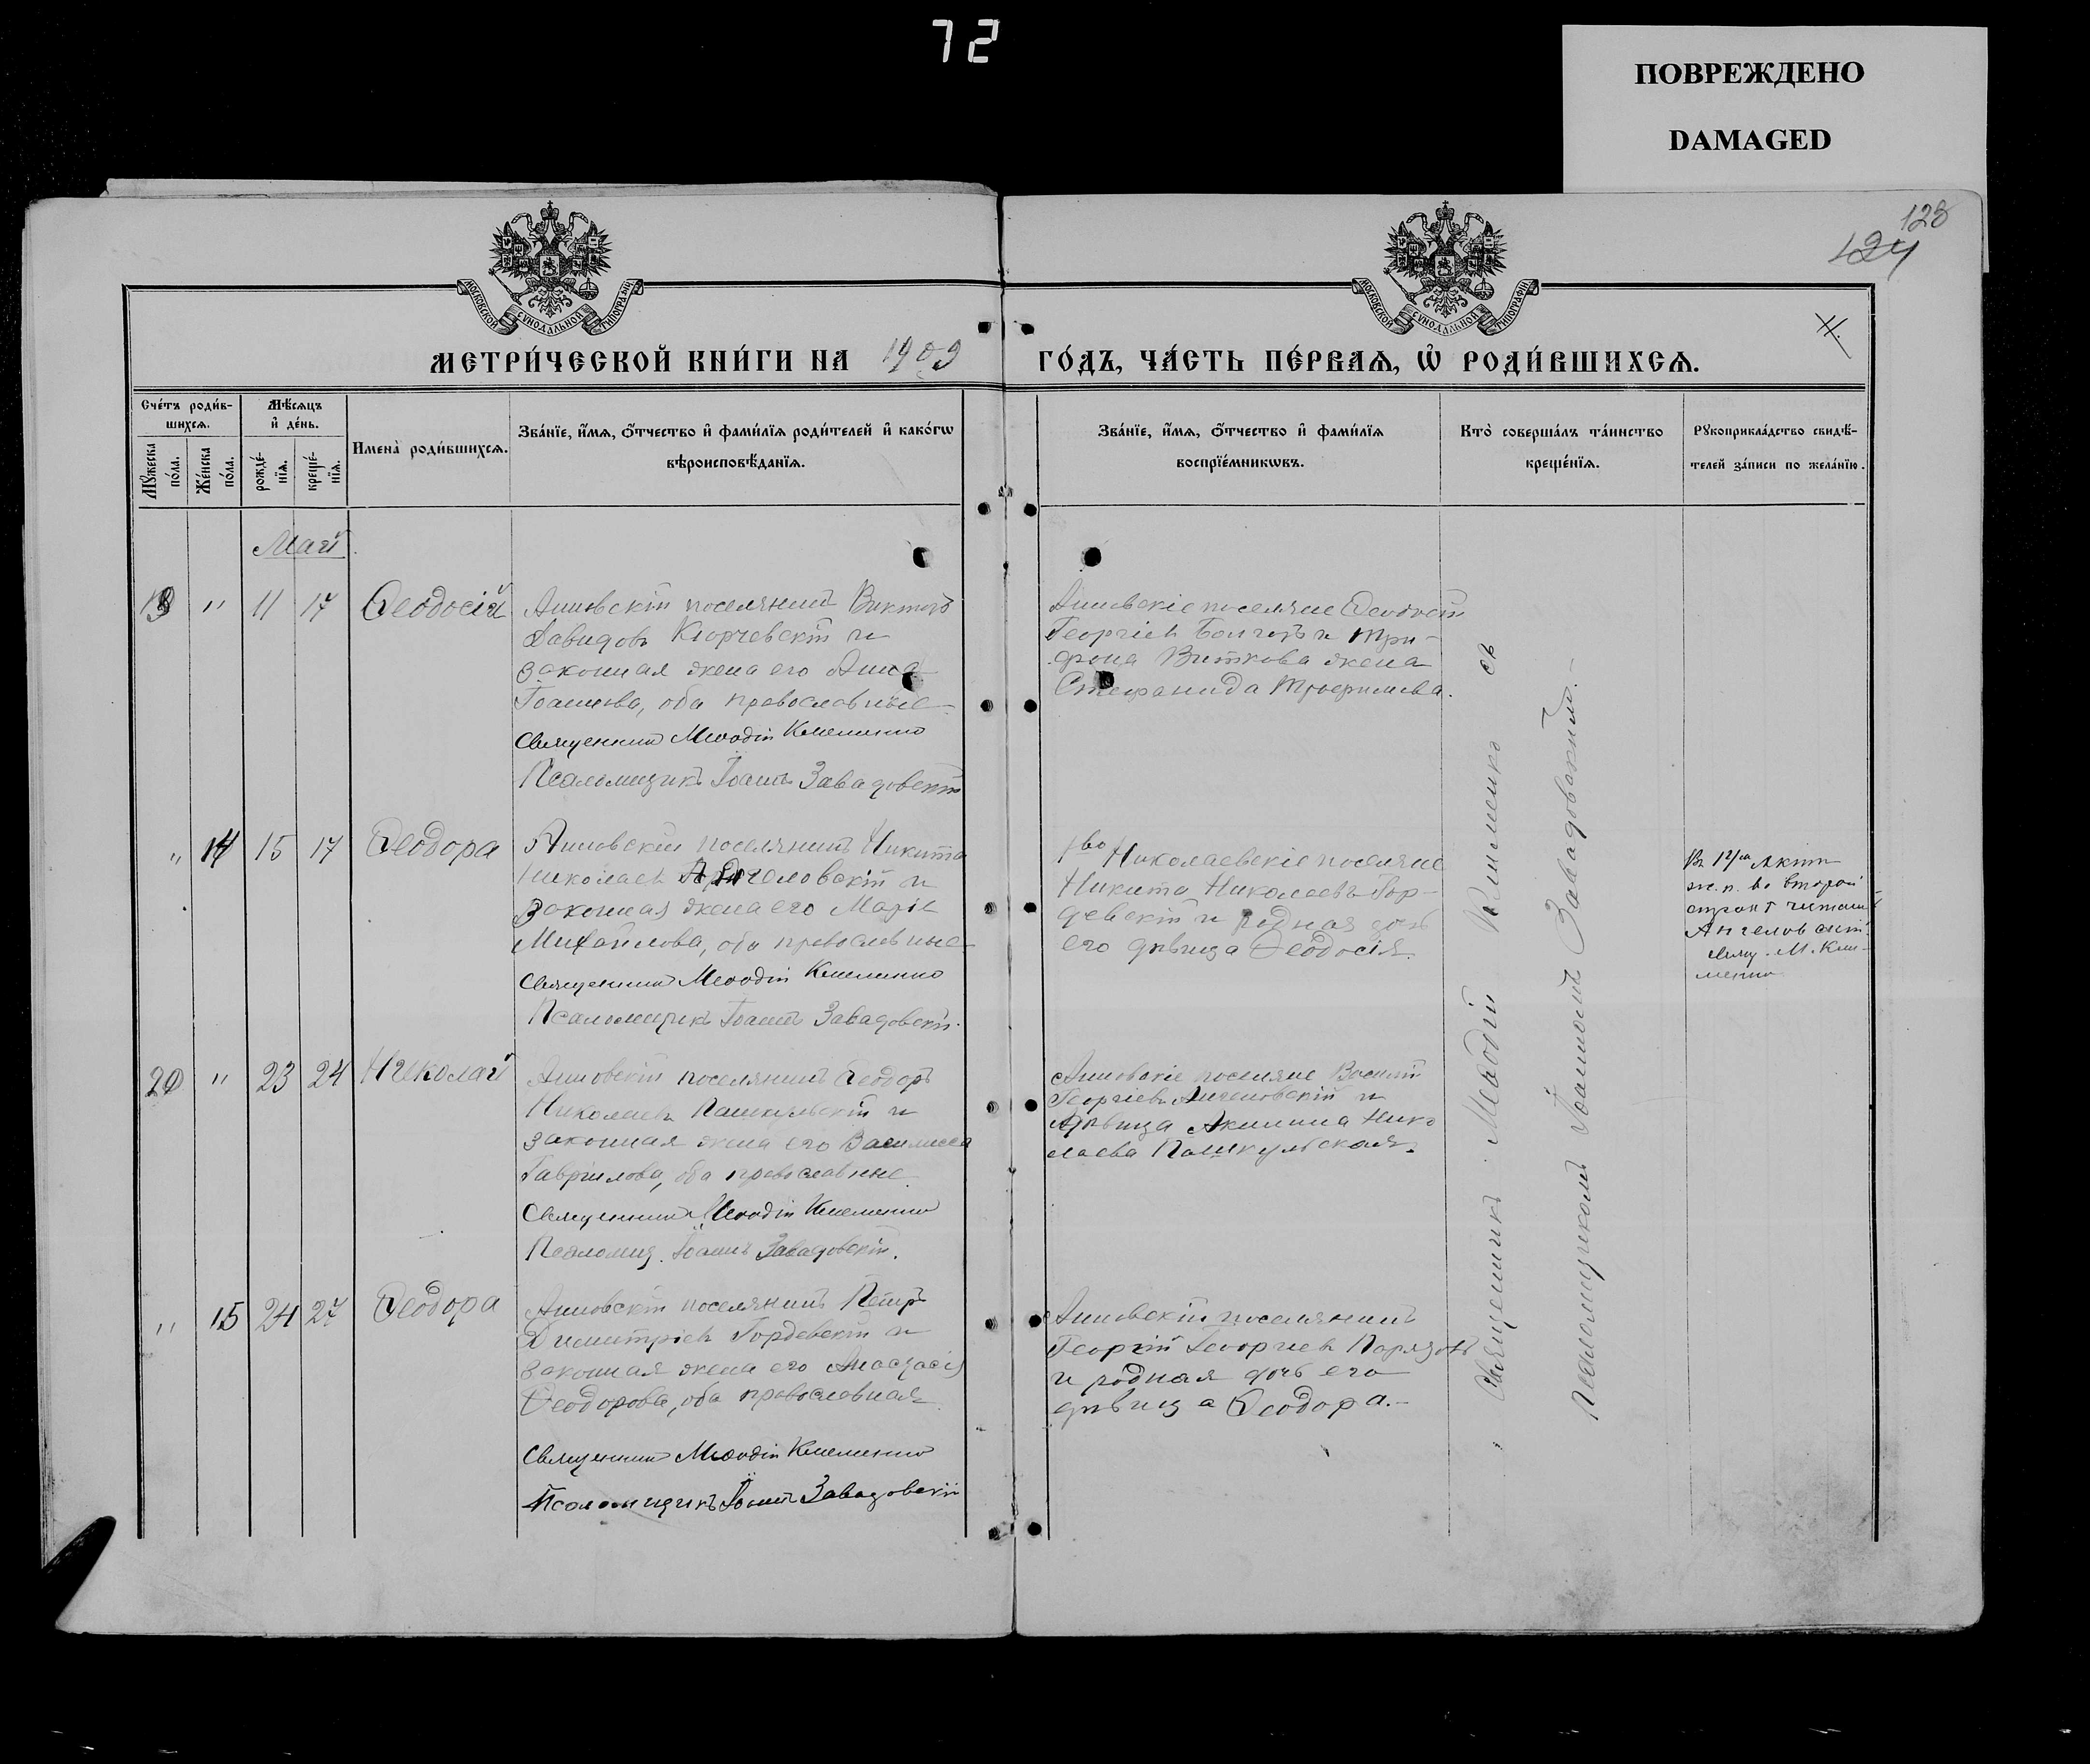 72
ПОВРЕЖДЕНО
DAMAGED
128
124
МОСКОВСКОЙ СѴНОДАЛЬНОЙ ТИПОГРАФІИ
МОСКОВСКОЙ СѴНОДАЛЬНОЙ ТИПОГРАФІИ
МЕТРИ́ЧЕСКОЙ КНИ́ГИ НА 1909 ГО́ДЪ, ЧА́СТЬ ПЕ́РВАѦ, Ѡ҆ РОДИ́ВШИХСѦ.
Сче́тъ роди́в-
шихсѧ.
Мѣ́сѧцъ
и҆ де́нь.
Мꙋ́жеска по́ла.
Же́нска по́ла.
рожде́-
нїѧ.
креще́-
нїѧ.
Имена̀ роди́вшихсѧ.
Зва́нїе, и҆́мѧ, ѻ҆́тчество и҆ фами́лїѧ роди́телей и҆ како́гѡ
вѣроисповѣ́данїѧ.
Зва́нїе, и҆́мѧ, ѻ҆́тчество и҆ фами́лїѧ
воспрїе́мникѡвъ.
Кто̀ соверша́лъ та́инство
креще́нїѧ.
Рꙋкоприкла́дство свидѣ́-
телей за́писи по жела́нїю.
Май
19 " 11 17 Ѳеодосій
Анновскій поселянинъ Викторъ
Давидовъ Кюрчевскій и
законная жена его Анна
Іоаннова, оба православные
Священникъ Меѳодій Клименко
Псаломщикъ Іоаннъ Завадовскій
Анновскіе поселяне Ѳеодосій
Георгіевъ и Три-
фона Виткова жена
Стефанида Трофимова.
" 14 15 17 Ѳеодора
Анновскій поселянинъ Никита
Николаевъ Ангеловскій и
законная жена его Марія
Михайлова, оба православные
Священникъ Меѳодій Клименко
Псаломщикъ Іоаннъ Завадовскій.
1во Николаевскіе поселяне
Никита Николаевъ Гор-
девскій и родная дочь
его дѣвица Ѳеодосія.
Въ актѣ
ж. п. во второй
строкѣ читать
Ангеловскій.
Свящ. М. Кли-
менко
20 " 23 24 Николай
Анновскій поселянинъ Ѳеодоръ
Николаевъ Пашкульскій и
законная жена его Василисса
Гавріилова, оба православные.
Священникъ Меѳодій Клименко
Псаломщ. Іоаннъ Завадовскій.
Анновскіе поселяне Василій
Георгіевъ Ангеловскій и
дѣвица Акилина Нико
лаева Пашкульская.
" 15 24 27 Ѳеодора
Анновскій поселянинъ Петръ
Димитріевъ Гордевскій и
законная жена его Анастасія
Ѳеодорова, оба православная
Священникъ Меѳодій Клименко
Псаломщикъ Іоаннъ Завадовскій
Анновскій поселянинъ
Георгій Георгіевъ
и родная дочь его
дѣвица Ѳеодора.
Священникъ Меѳодій Клименко съ
Псаломщикомъ Іоанномъ Завадовскимъ.